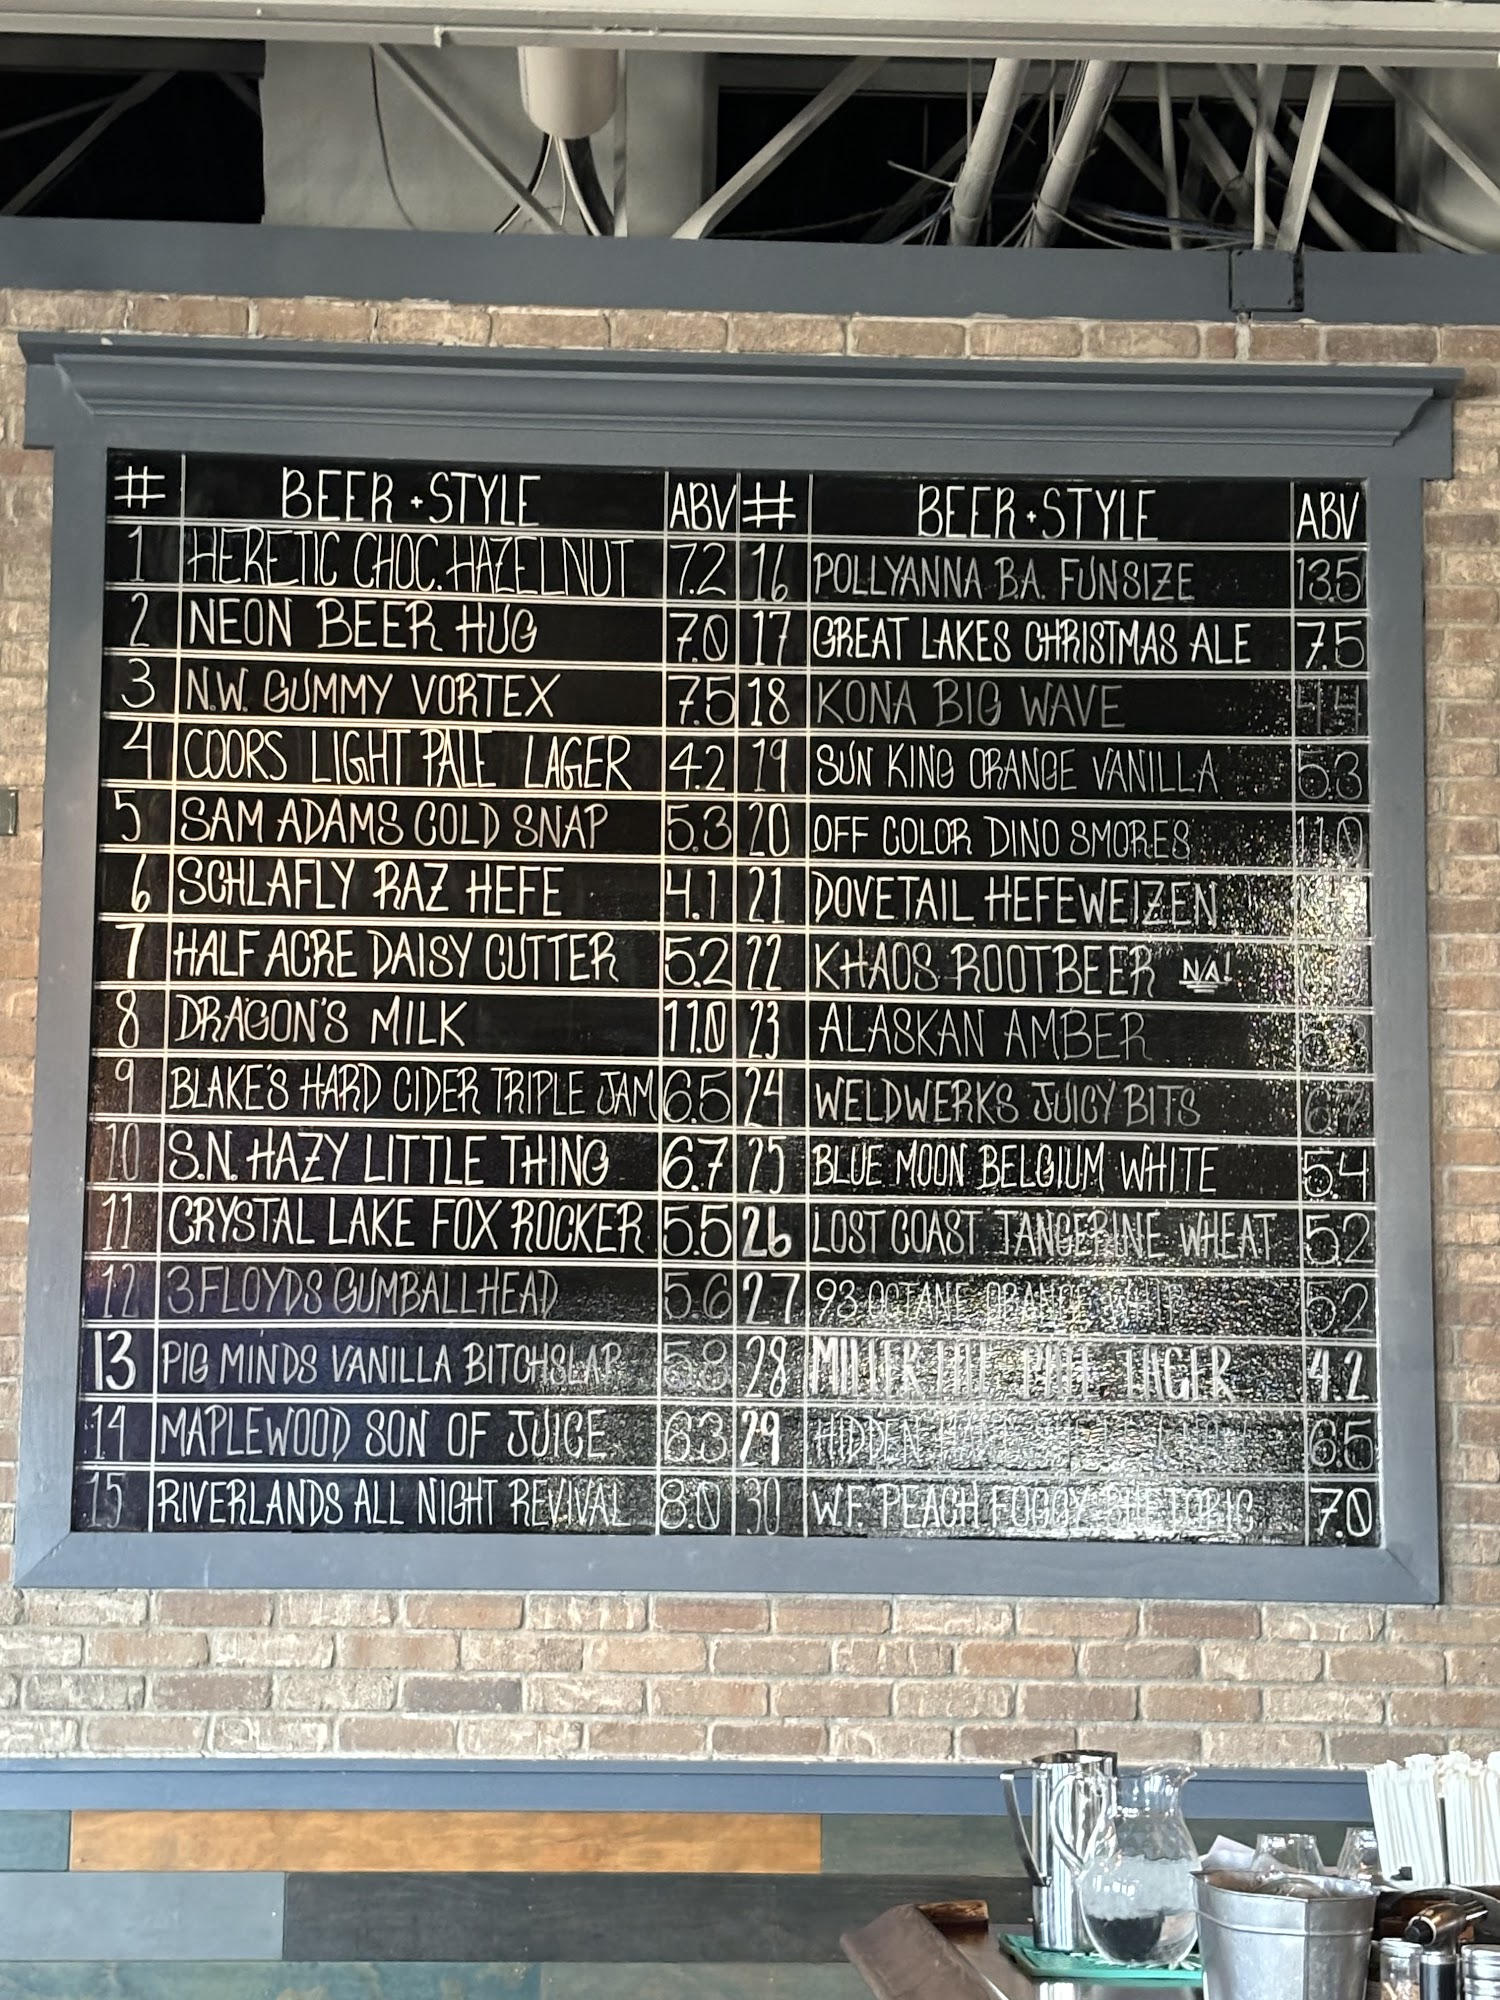 # BEER + STYLE ABV
1 HERETIC CHOC. HAZELNUT 7.2
2 NEON BEER HUG 7.0
3 N.W. GUMMY VORTEX 7.5
4 COORS LIGHT PALE LAGER 4.2
5 SAM ADAMS COLD SNAP 5.3
6 SCHLAFLY RAZ HEFE 4.1
7 HALF ACRE DAISY CUTTER 5.2
8 DRAGON'S MILK 11.0
9 BLAKE'S HARD CIDER TRIPLE JAM 6.5
10 S.N. HAZY LITTLE THING 6.7
11 CRYSTAL LAKE FOX ROCKER 5.5
12 3 FLOYDS GUMBALLHEAD 5.6
13 PIG MINDS VANILLA BITCHSLAP 5.8
14 MAPLEWOOD SON OF JUICE 6.3
15 RIVERLANDS ALL NIGHT REVIVAL 8.0
# BEER + STYLE ABV
16 POLLYANNA B.A. FUNSIZE 13.5
17 GREAT LAKES CHRISTMAS ALE 7.5
18 KONA BIG WAVE 4.4
19 SUN KING ORANGE VANILLA 5.3
20 OFF COLOR DINO SMORES 11.0
21 DOVETAIL HEFEWEIZEN
22 KHAOS ROOTBEER N/A!
23 ALASKAN AMBER
24 WELDWERKS JUICY BITS 6.7
25 BLUE MOON BELGIUM WHITE 5.4
26 LOST COAST TANGERINE WHEAT 5.2
27 93 OCTANE ORANGE WHIP 5.2
28 MILLER LITE PALE LAGER 4.2
29 HIDDEN 6.5
30 W.F. PEACH FOGGY RHETORIC 7.0